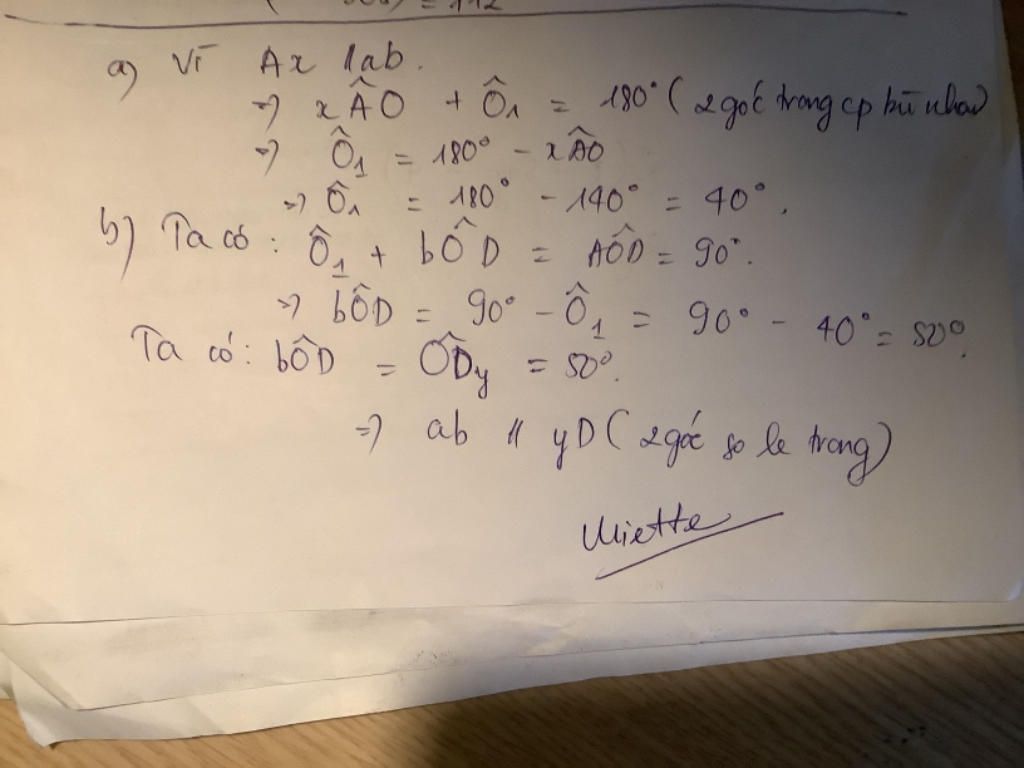 = 112
a) Vì Ax // ab.
=> xÂO + Ô1 = 180° (2 góc trong cp bù nhau)
=> Ô1 = 180° - xÂO
=> Ô1 = 180° - 140° = 40°.
b) Ta có: Ô1 + bÔD = AÔD = 90°.
=> bÔD = 90° - Ô1 = 90° - 40° = 50°.
Ta có: bÔD = ODy = 50°.
=> ab // yD (2 góc so le trong)
Miette